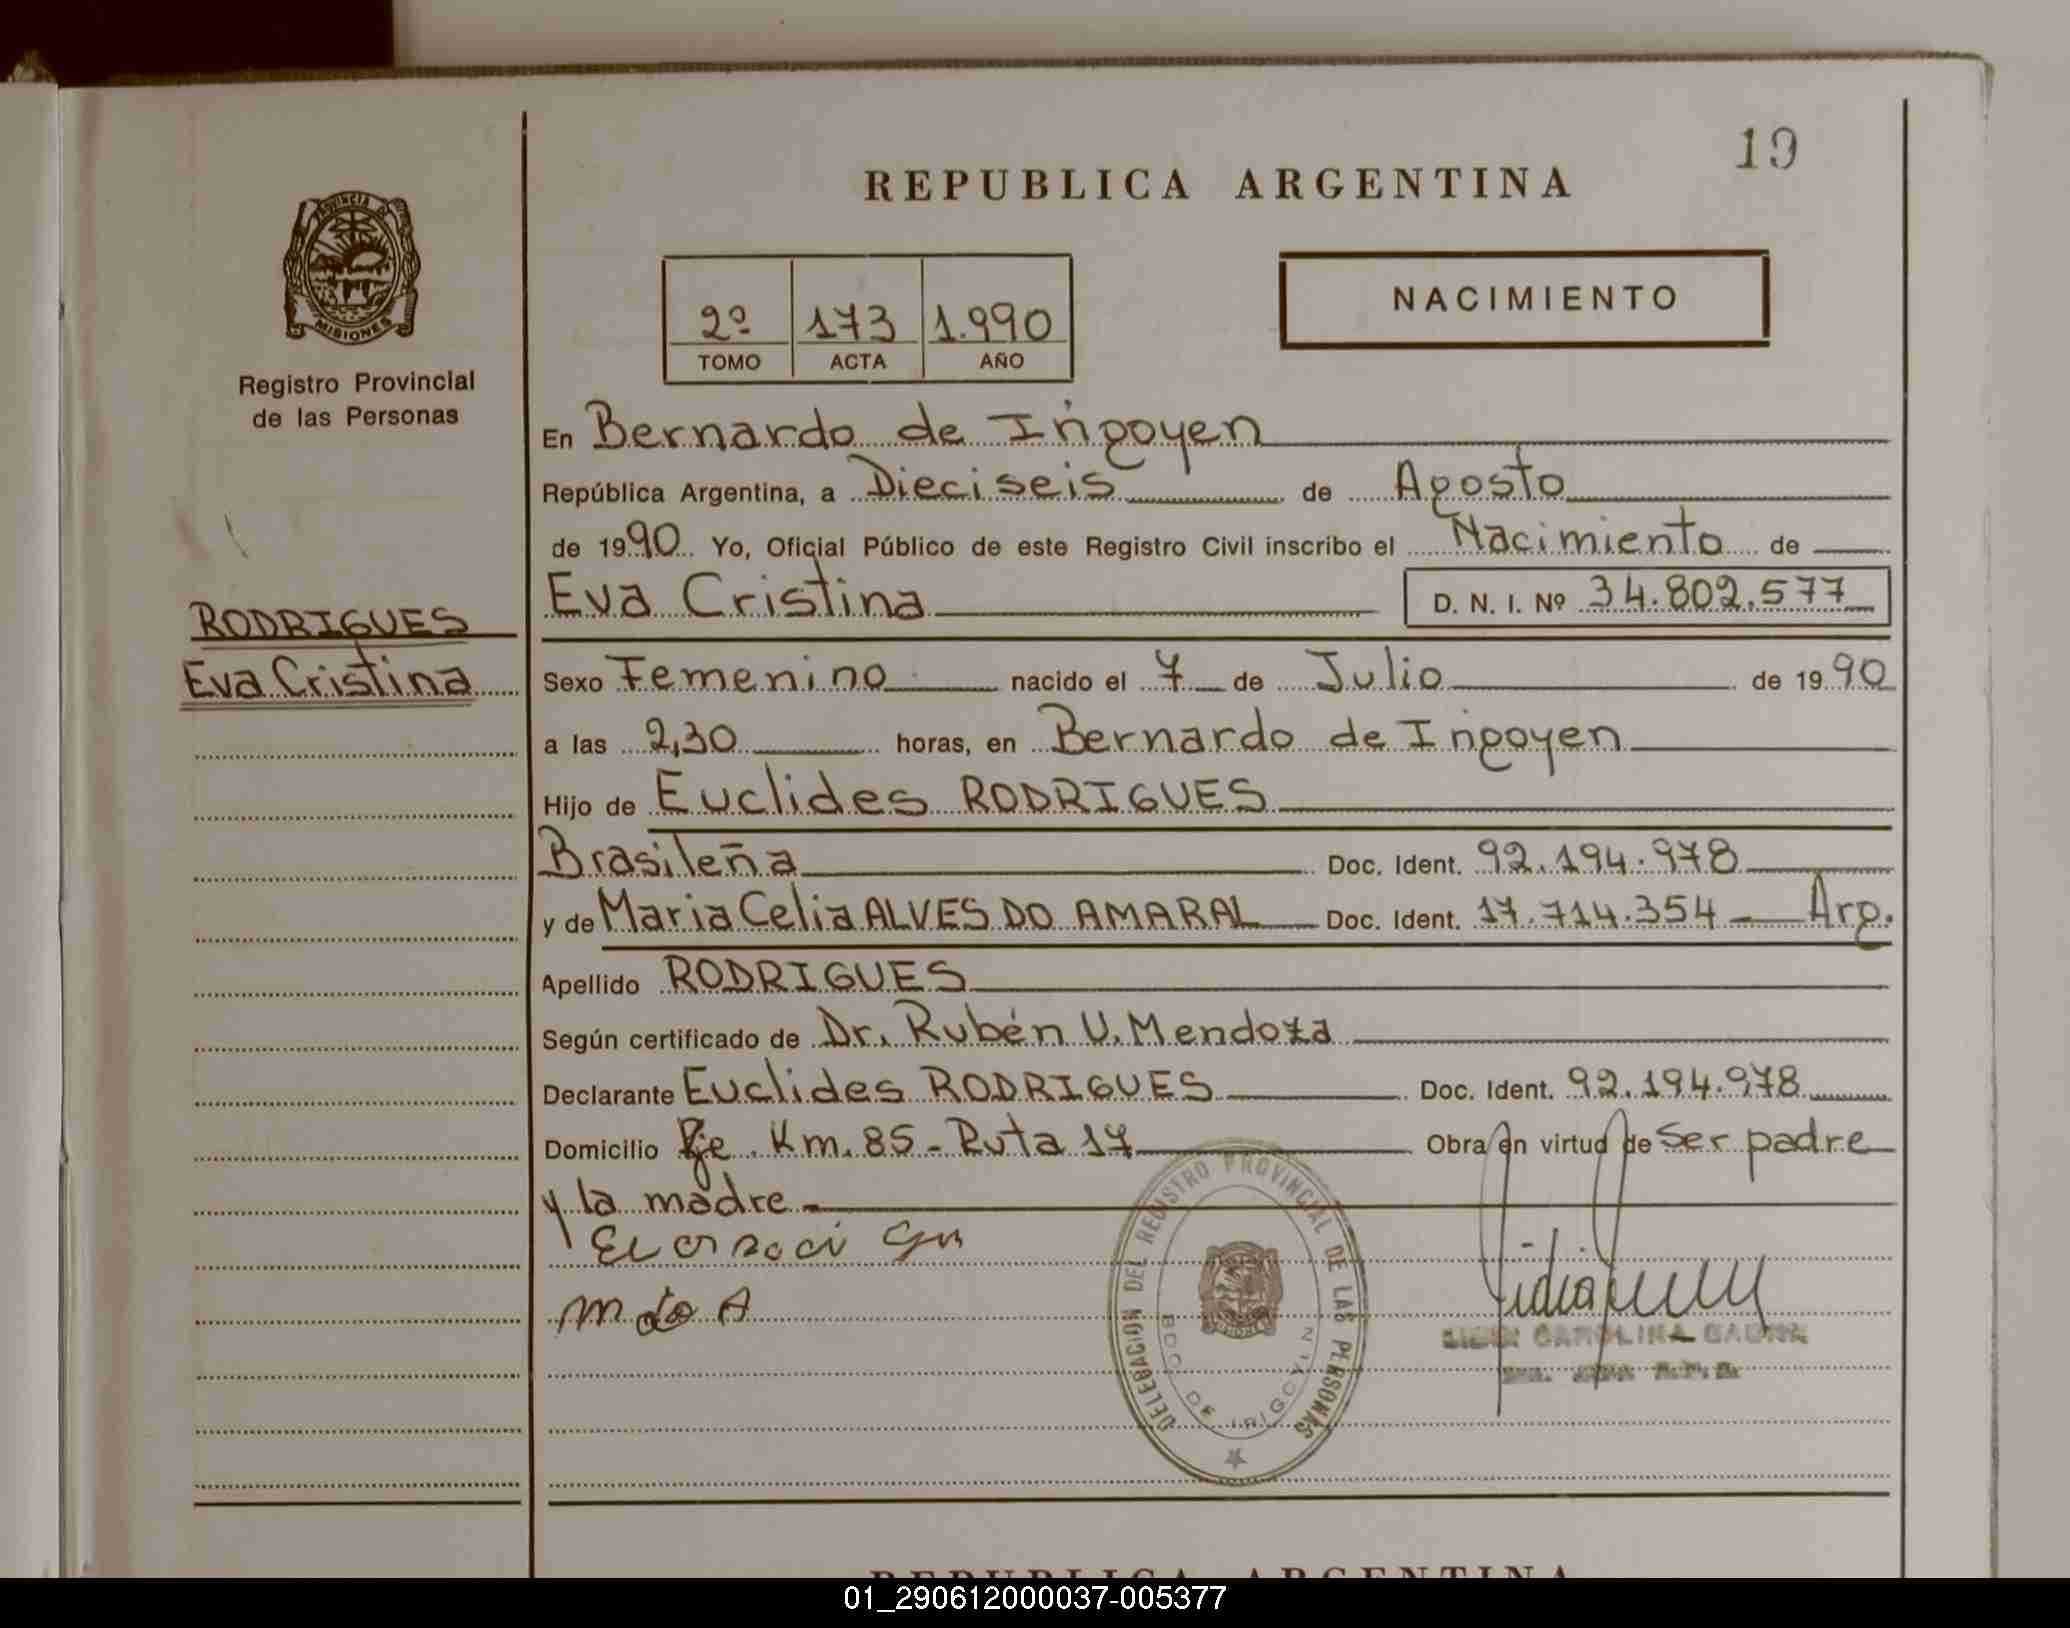 19
REPUBLICA ARGENTINA
PROVINCIA DE
MISIONES
Registro Provincial
de las Personas
2º 173 1.990
TOMO ACTA AÑO
NACIMIENTO
En Bernardo de Irigoyen
República Argentina, a Dieciseis de Agosto
de 1990 Yo, Oficial Público de este Registro Civil inscribo el Nacimiento de
Eva Cristina D. N. I. Nº 34.802.577
RODRIGUES
Eva Cristina
Sexo Femenino nacido el 7 de Julio de 1990
a las 2,30 horas, en Bernardo de Irigoyen
Hijo de Euclides RODRIGUES
Brasileña Doc. Ident. 92.194.978
y de Maria Celia ALVES DO AMARAL Doc. Ident. 17.714.354 - Arg.
Apellido RODRIGUES
Según certificado de Dr. Rubén U. Mendoza
Declarante Euclides RODRIGUES Doc. Ident. 92.194.978
Domicilio Pje. Km. 85 - Ruta 17 Obra en virtud de ser padre
y la madre.-
DELEGACION DEL REGISTRO PROVINCIAL DE LAS PERSONAS
BDO. DE IRIGOYEN
MISIONES
CAROLINA
REPUBLICA ARGENTINA
01_290612000037-005377